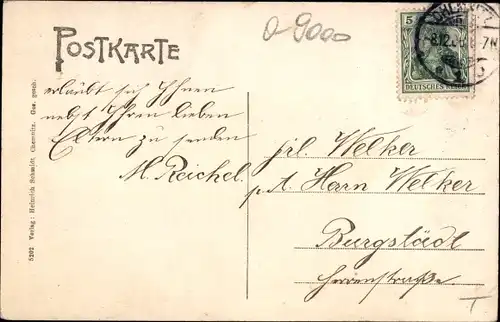 O-9000
POSTKARTE
5
DEUTSCHES REICH
CHEMNITZ
8.12.
erlaubt sich Ihnen
nebst Ihren lieben
Eltern zu senden
M. Reichel.
frl. Welker
p. A. Herrn Welker
Burgstädt
Herrenstraße.
5202 Verlag: Heinrich Schmidt, Chemnitz. Ges. gesch.